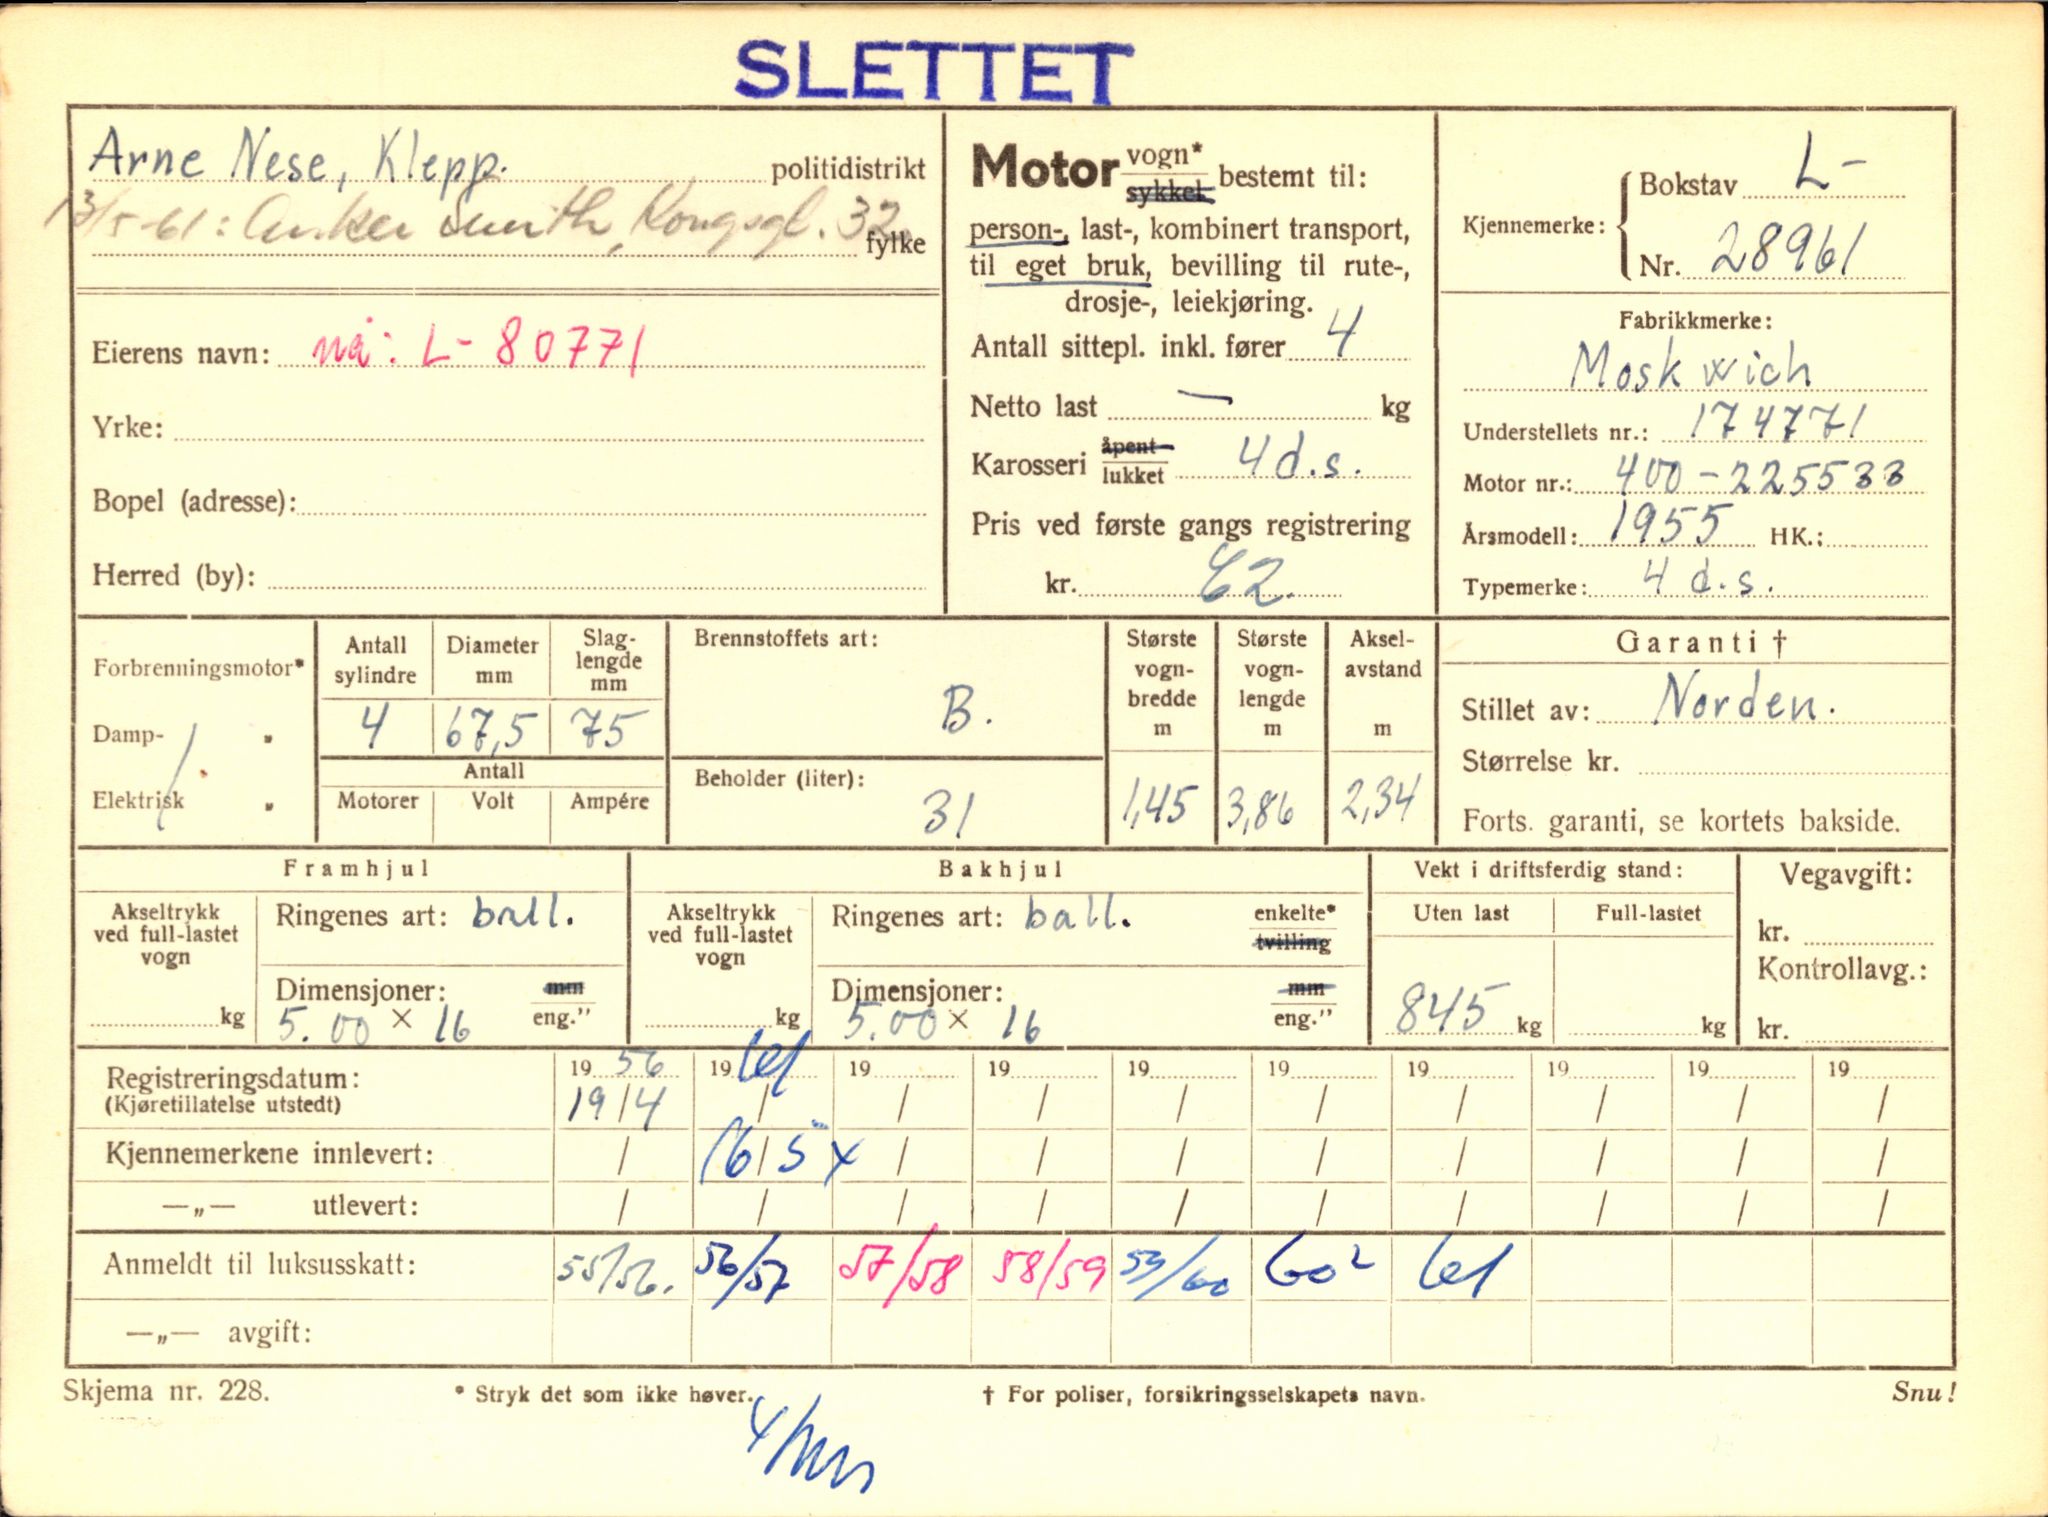 SLETTET
Arne Nese, Klepp. politidistrikt
13/5-61: Anker Smith, Kongsgt. 32 fylke
Eierens navn: nå: L- 80771
Yrke:
Bopel (adresse):
Herred (by):
Motor vogn* sykkel bestemt til:
person-, last-, kombinert transport,
til eget bruk, bevilling til rute-,
drosje-, leiekjøring.
Antall sittepl. inkl. fører 4
Netto last — kg
Karosseri åpent lukket 4 d.s.
Pris ved første gangs registrering
kr. 62.
Kjennemerke: Bokstav L-
Nr. 28961
Fabrikkmerke:
Moskwich
Understellets nr.: 174771
Motor nr.: 400-225533
Årsmodell: 1955 HK.:
Typemerke: 4 d.s.
Forbrenningsmotor*
Damp- "
Elektrisk "
Antall sylindre Diameter mm Slag-lengde mm
4 67,5 75
Antall
Motorer Volt Ampére
Brennstoffets art:
B.
Beholder (liter):
31
Største vogn-bredde m Største vogn-lengde m Aksel-avstand m
1,45 3,86 2,34
Garanti †
Stillet av: Norden.
Størrelse kr.
Forts. garanti, se kortets bakside.
Framhjul
Akseltrykk ved full-lastet vogn
kg
Ringenes art: ball.
Dimensjoner: mm
5.00 × 16 eng."
Bakhjul
Akseltrykk ved full-lastet vogn
kg
Ringenes art: ball. enkelte* tvilling
Dimensjoner: mm
5.00 × 16 eng."
Vekt i driftsferdig stand:
Uten last Full-lastet
845 kg kg
Vegavgift:
kr.
Kontrollavg.:
kr.
Registreringsdatum: 19 56 19 61 19 19 19 19 19 19 19 19
(Kjøretillatelse utstedt) 19/4 / / / / / / / / /
Kjennemerkene innlevert: / 16/5 x / / / / / / / /
—„— utlevert: / / / / / / / / / /
Anmeldt til luksusskatt: 55/56. 56/57 57/58 58/59 59/60 60² 61
—„— avgift:
Skjema nr. 228. * Stryk det som ikke høver. † For poliser, forsikringsselskapets navn. Snu!